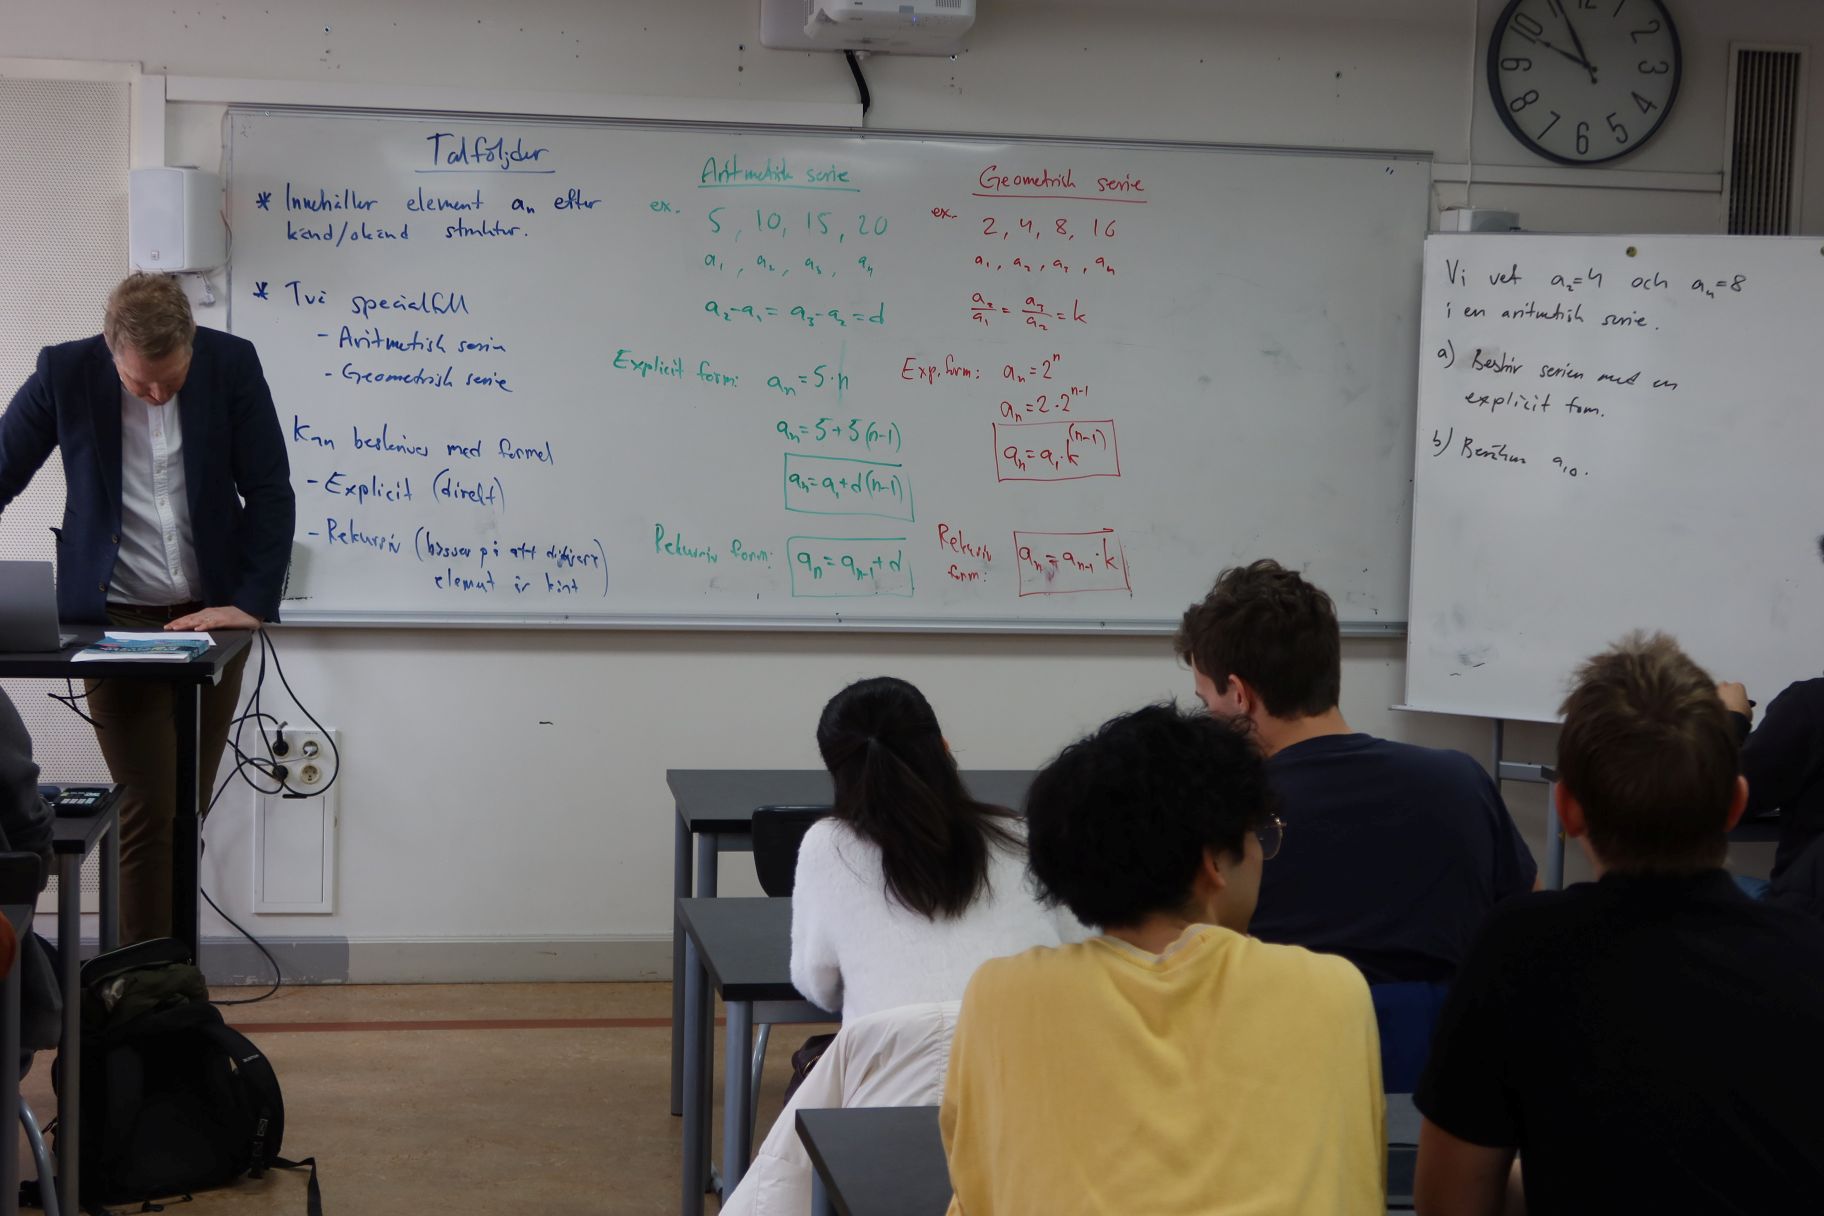 Talföljder
* Innehåller element aₙ efter
känd/okänd struktur.
* Två specialfall
- Aritmetisk serie
- Geometrisk serie
Kan beskrivas med formel
- Explicit (direkt)
- Rekursiv (baseras på att tidigare
element är känt)
Aritmetisk serie
ex. 5, 10, 15, 20
a₁, a₂, a₃, a₄
a₂-a₁ = a₃-a₂ = d
Explicit form: aₙ = 5·n
aₙ = 5+5(n-1)
aₙ = a₁+d(n-1)
Rekursiv form: aₙ = aₙ₋₁+d
Geometrisk serie
ex. 2, 4, 8, 16
a₁, a₂, a₃, a₄
a₂/a₁ = a₃/a₂ = k
Exp. form: aₙ = 2ⁿ
aₙ = 2·2ⁿ⁻¹
aₙ = a₁·k⁽ⁿ⁻¹⁾
Rekursiv
form: aₙ = aₙ₋₁·k
Vi vet a₂=4 och a₄=8
i en aritmetisk serie.
a) Beskriv serien med en
explicit form.
b) Bestäm a₁₀.
10 11 12 1 2 3 4 5 6 7 8 9